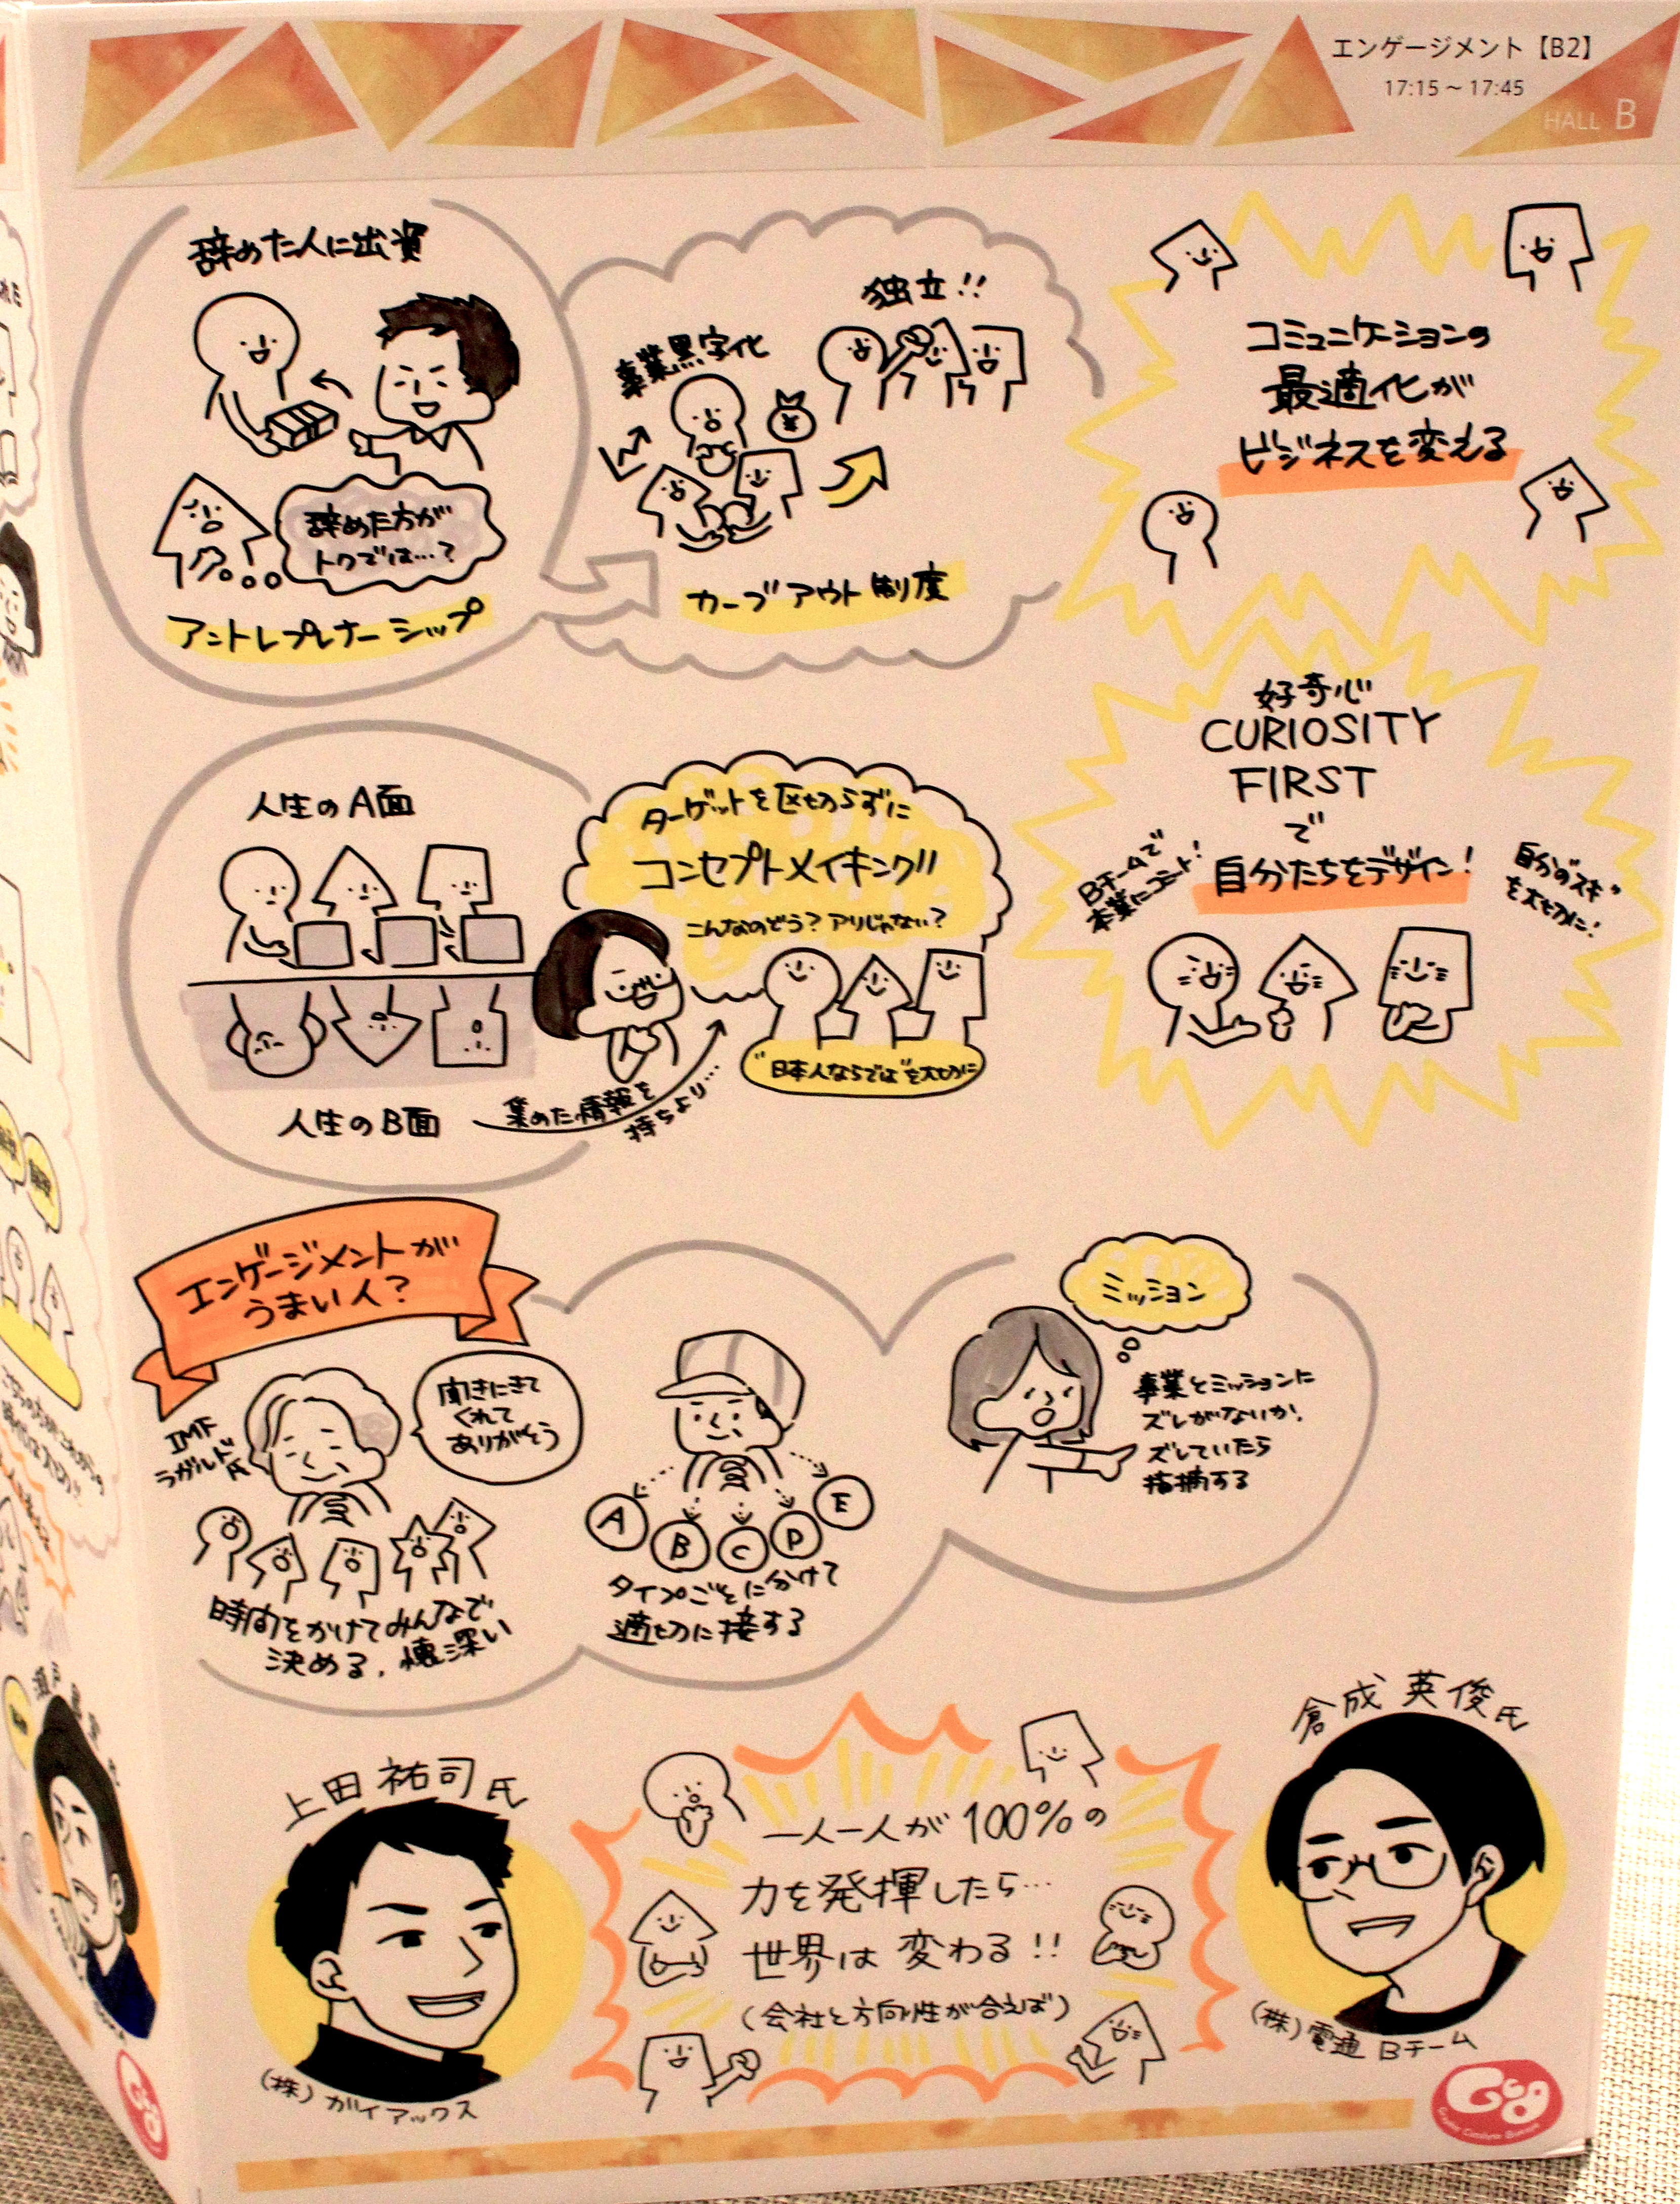 エンゲージメント【B2】
17:15～17:45
HALL B
辞めた人に出資
辞めた方が
トクでは…？
アントレプレナーシップ
事業黒字化
独立!!
¥
カーブアウト制度
コミュニケーションの
最適化が
ビジネスを変える
人生のA面
人生のB面
集めた情報を
持ちより…
ターゲットを区切らずに
コンセプトメイキング!!
こんなのどう？アリじゃない？
"日本人ならでは"を大切に
好奇心
CURIOSITY
FIRST
で
自分たちをデザイン！
Bチームで
本業にコミット！
自分の"スキ"
を大切に！
エンゲージメントが
うまい人？
IMF
ラガルド氏
聞きにきて
くれて
ありがとう
時間をかけてみんなで
決める、懐深い
A
B
C
D
E
タイプごとに分けて
適切に接する
ミッション
事業とミッションに
ズレがないか、
ズレていたら
指摘する
上田 祐司氏
(株)ガイアックス
一人一人が100%の
力を発揮したら…
世界は変わる!!
(会社と方向性が合えば)
倉成 英俊氏
(株)電通 Bチーム